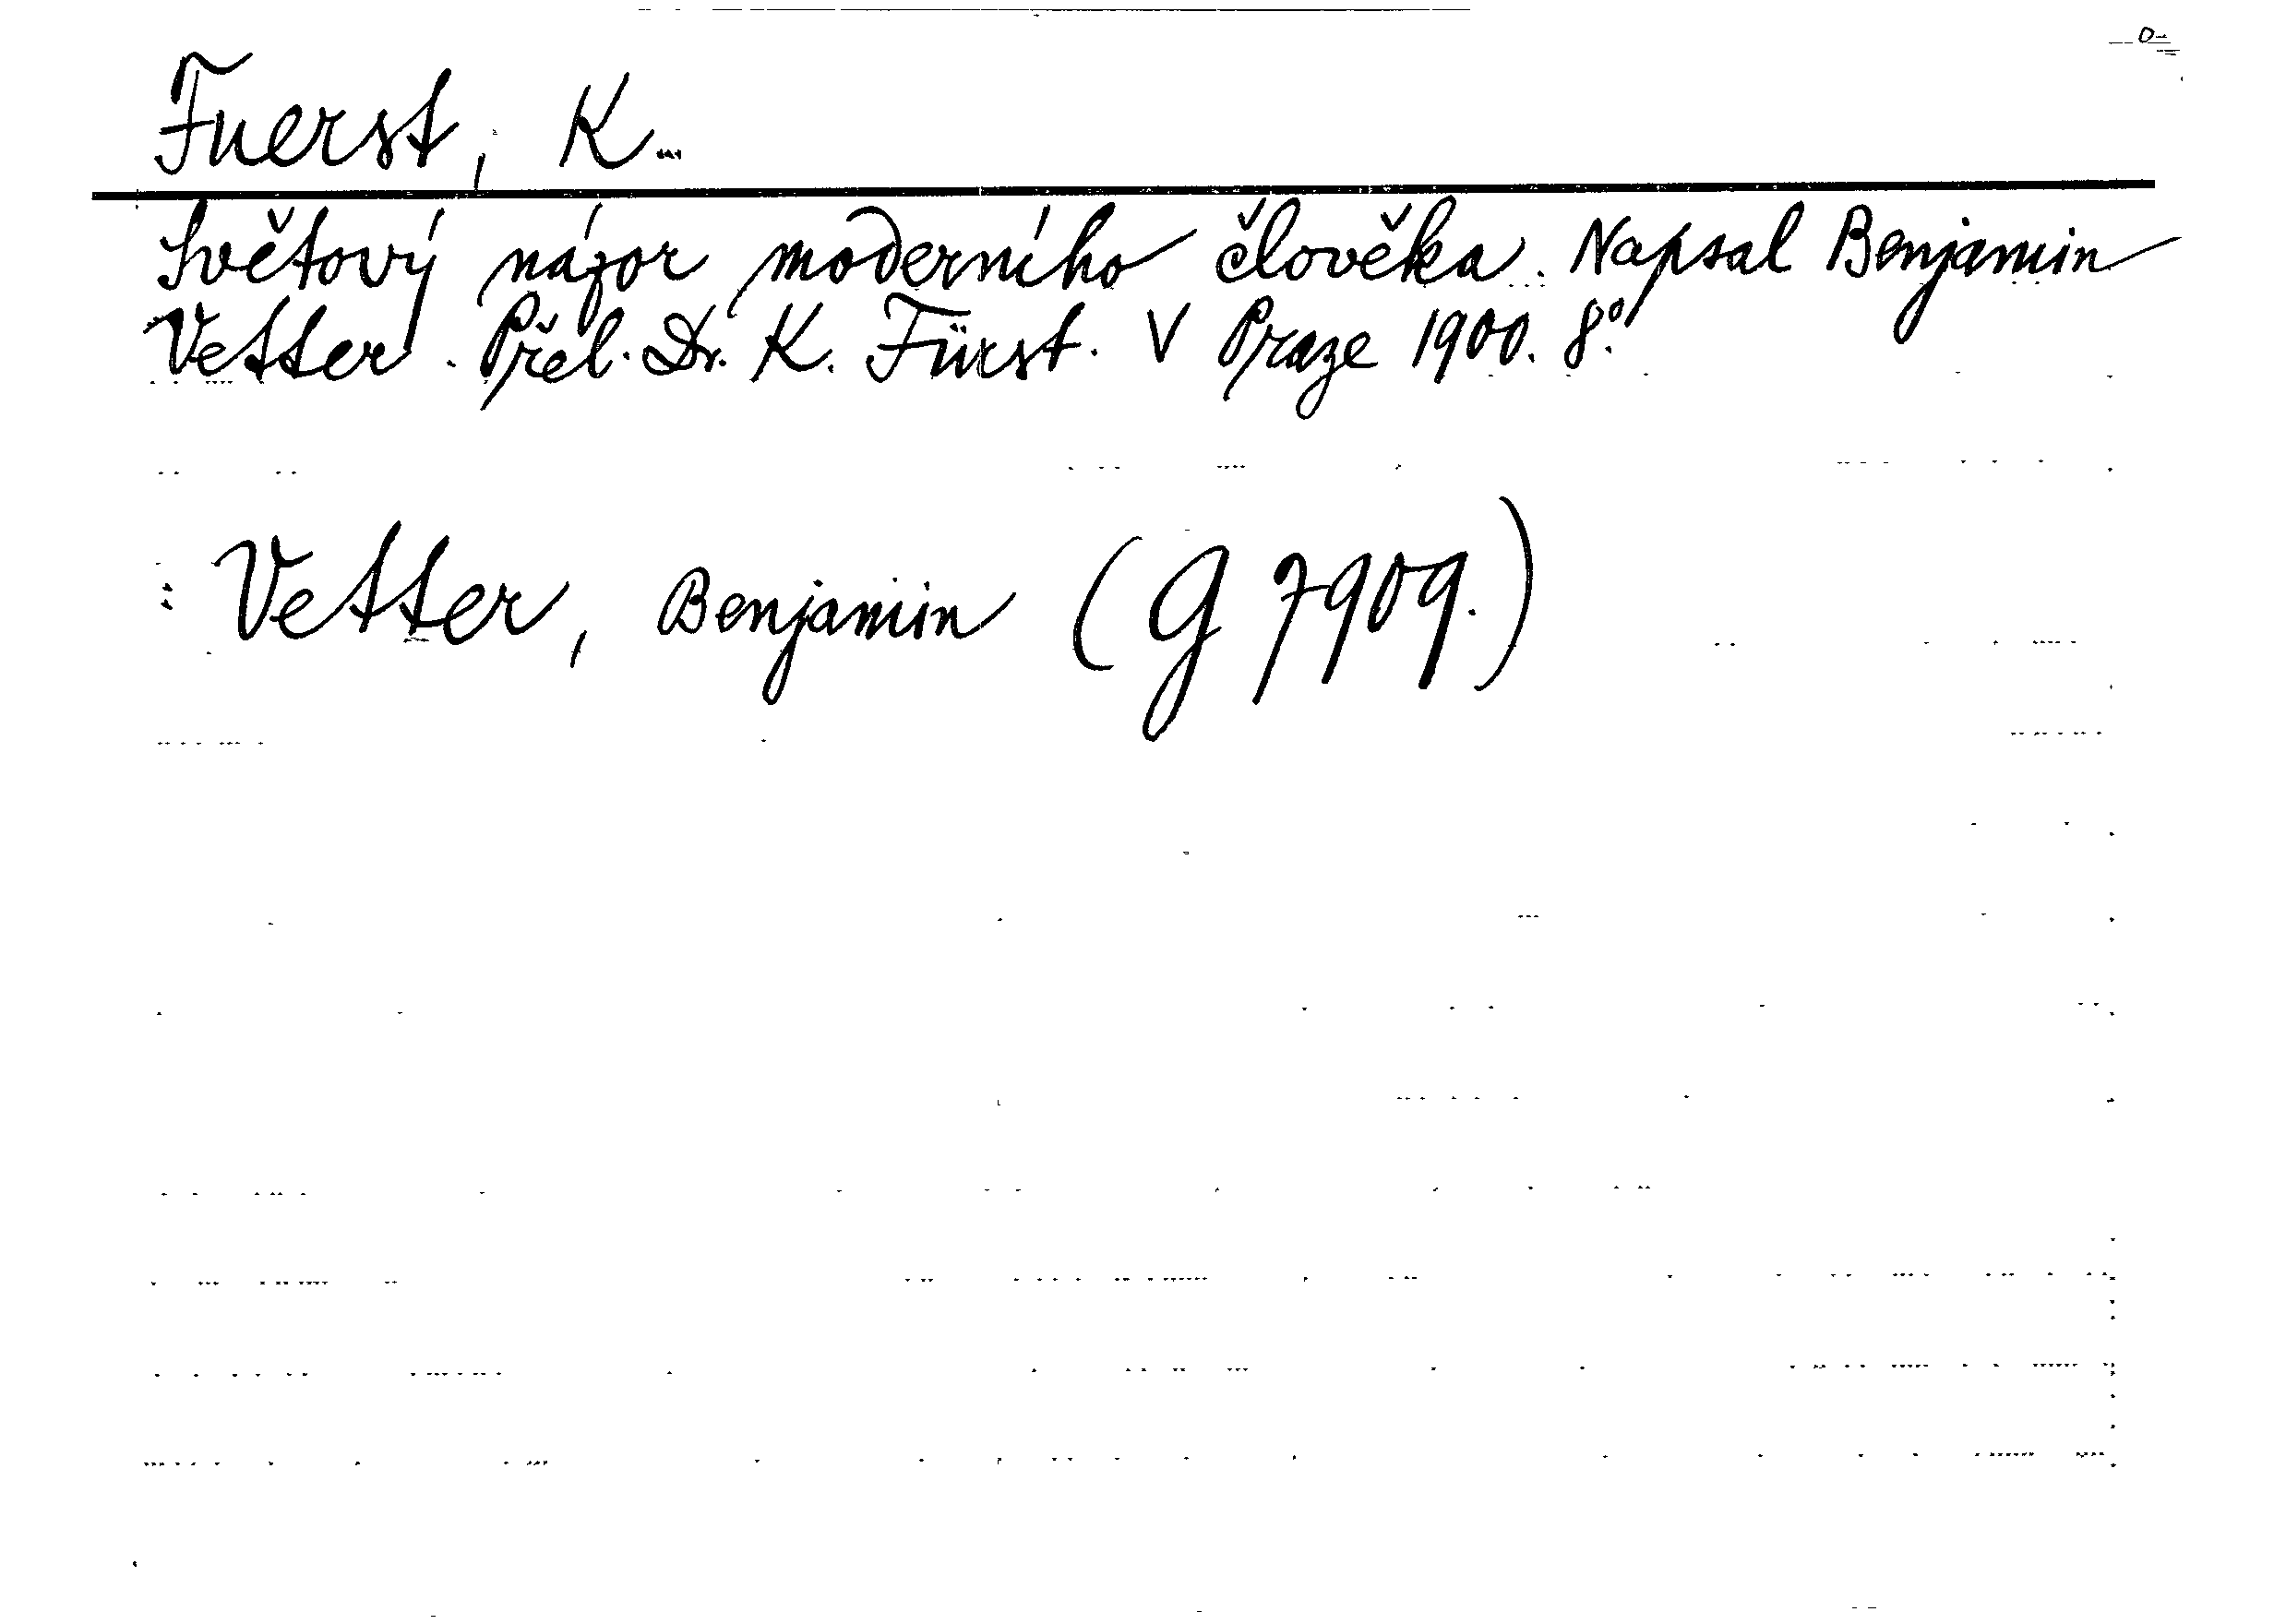 Fuerst, K...
Světový názor moderního člověka. Napsal Benjamin
Vetter. Přel. Dr. K. Fürst. V Praze 1900. 8°.
: Vetter, Benjamin (G 7909.)